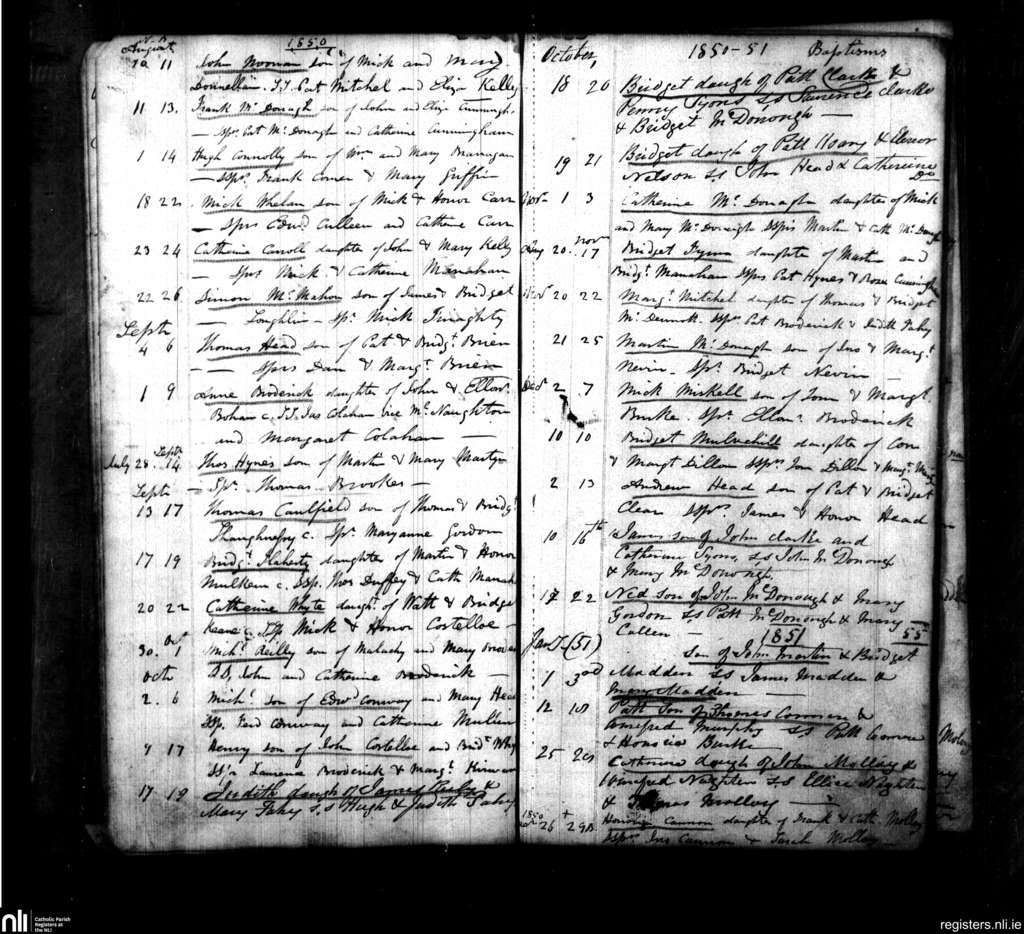 August 1850
10 11 John Noonan son of Mick and Mary
Donnellan. Pat Mitchel and Eliza Kelly
11 13. Frank McDonagh son of John and Eliza Cunningh.
— Sprs. Pat McDonagh and Catherine Cunningham
1 14 Hugh Connolly son of Wm and Mary Brannigan
— Frank Comer & Mary Griffin
18 22 Mick Whelan son of Mick & Honor Carr
— Sprs Edwd Culleen and Catherine Carr
23 24 Catherine Carroll daughter of John & Mary Kelly
— Sprs Mick & Catherine Manahan
22 26 Simon McMahon son of James & Bridget
— Loughlin — Spr. Mick Finaghty
Septr
4 6 Thomas Head son of Pat & Bridgt. Brien
— Sprs Dan & Margt. Brien
1 9 Anne Broderick daughter of John & Ellen
Bohan Jas Colahan vice McNaughton
and Margaret Colahan —
July 28 Septr 14 Thos Hynes son of Martin & Mary Martyn
— Spr. Thomas Brookes —
Septr
13 17 Thomas Caulfield son of Thomas & Bridgt.
Shaughnessy c. Spr. Maryanne Gordon
17 19 Bridgt. Flaherty daughter of Martin & Honor
Mulkeen c. Thos Duffey & Cath Manah
20 22 Catherine Whyte daught. of Watt & Bridget
Keane c. Mick & Honor Costelloe —
30. Oct 1 Michl. Reilly son of Malachy and Mary
Octr John and Catherine Broderick —
2. 6 Michl. son of Edwd Conway and Mary Hea
Conway and Catherine Mullin
9 17 Henry son of John Costelloe and Bridt.
Broderick & Margt. Kirwan
17 19 Judith daugh of James &
Mary Fahy S.S Hugh & Judith Fahy
October, 1850-51 Baptisms
18 20 Bridget daugh of Patt Clarke &
Penny Lyons SS Laurence Clarke
& Bridget McDonough —
19 21 Bridget daugh of Patt Hoary & Elenor
Nelson SS John Head & Catherine
Do
Novr 1 3 Catherine McDonagh daughter of Mick
and Mary McDonagh Sprs Martin & Cath McDonagh
Aug 20. Novr 17 Bridget daughter of Martin and
Bridgt. Manahan Sprs Pat Hynes & Rose
Novr 20 22 Margt. Mitchel daughter of Thomas & Bridget
McDermott. Pat Broderick & Judith Fahy
21 25 Martin McDonagh son of Jno & Margt.
Nevin. Spr. Bridget Nevin —
Decr 2 7 Mick Miskell son of Tom & Margt.
Burke Spr. Ellen Broderick
10 10 Bridget Mulvehill daughter of Con
& Margt Dillon Dillon & Margt
2 13 Andrew Head son of Pat & Bridget
Clear James & Honor Head
10 16th James son of John Clarke and
Catherine Lyons, S.S John McDonough
& Mary McDonough.
17 22 Ned son of John McDonough & Mary
Gordon SS Patt McDonough & Mary —
Cullen — 1851 55
Jany (51) Son of John Martin & Bridget
1 3rd Madden SS James Madden &
Mary Madden —
12 18 Patt Son of Thomas Commer &
Winifred Murphy SS Patt Commer
& Honoria Burke
25 Catherine daugh of John Molloy &
Winifred Naghten S.S Ellen Naghten
& Thomas Molloy —
1850 26 29 Honoria Cannon daughter of Frank & Cath Molloy
Jno Cannon & Sarah Molloy —
nli Catholic Parish
Registers at
the NLI
registers.nli.ie